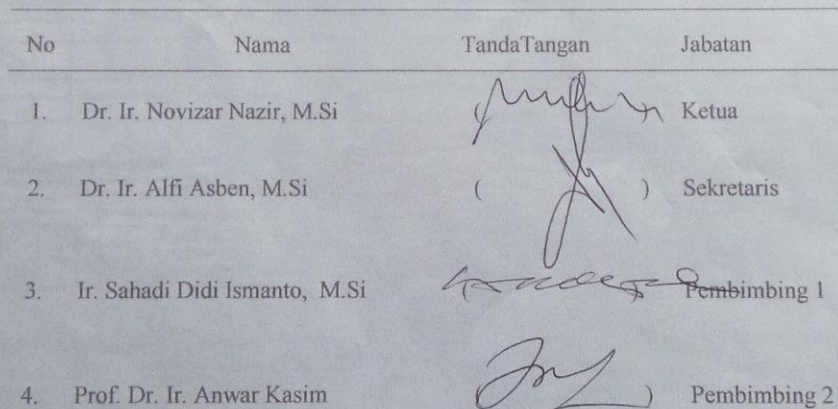 No Nama TandaTangan Jabatan
1. Dr. Ir. Novizar Nazir, M.Si ( ) Ketua
2. Dr. Ir. Alfi Asben, M.Si ( ) Sekretaris
3. Ir. Sahadi Didi Ismanto, M.Si Pembimbing 1
4. Prof. Dr. Ir. Anwar Kasim ( ) Pembimbing 2